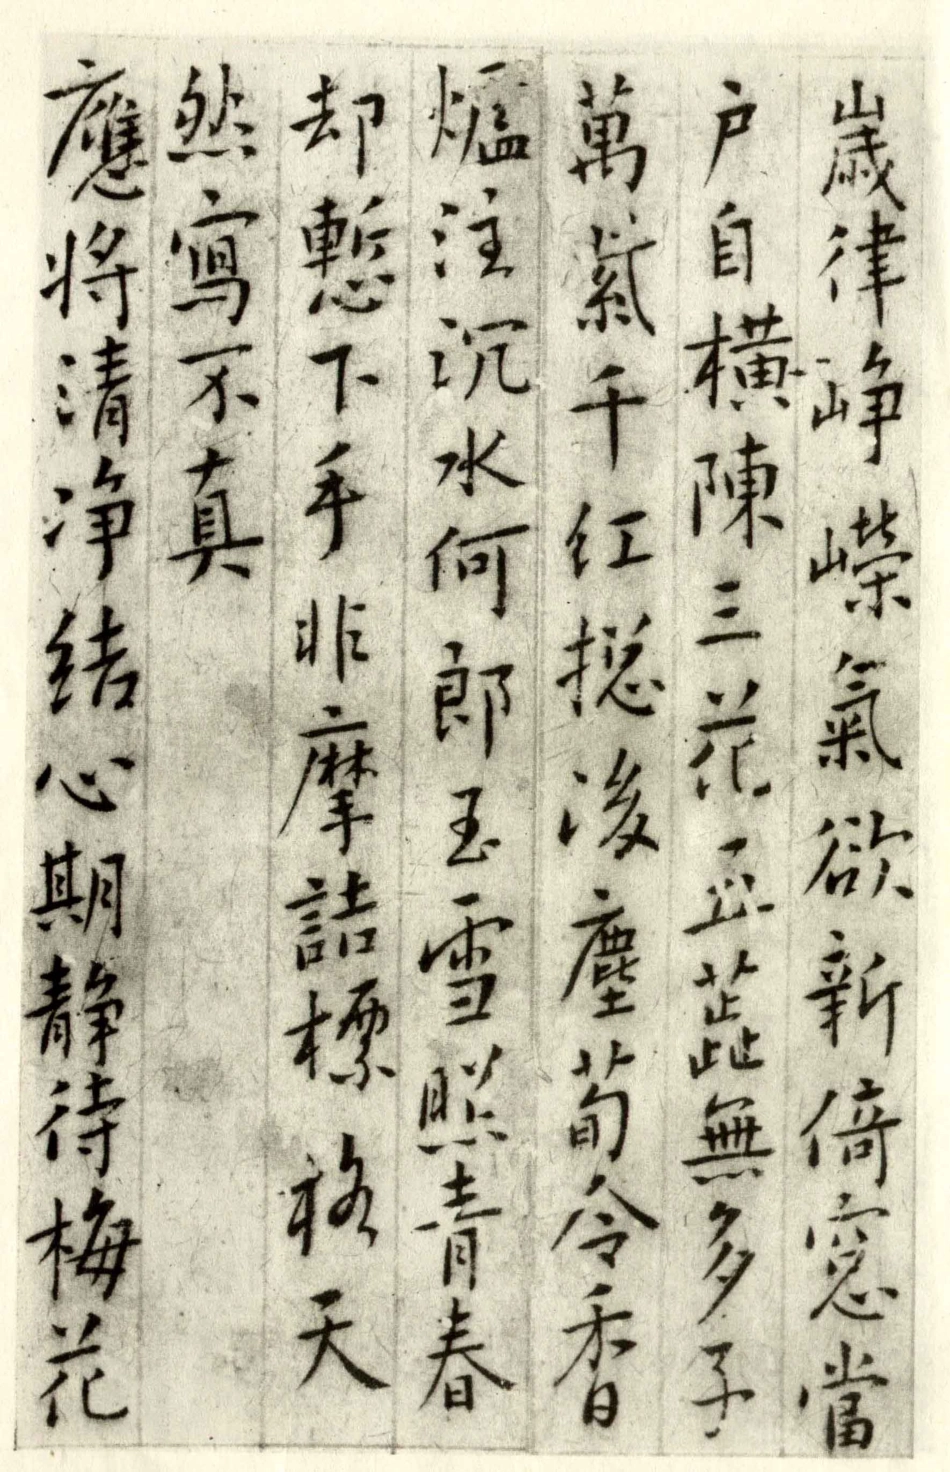 歲律崢嶸氣欲新倚窓當
户自橫陳三花五蕋無多子
萬紫千紅揔後塵荀令香
爐注沉水何郎玉雪照青春
却慙下手非摩詰標格天
然寫不真
應將清淨結心期靜待梅花